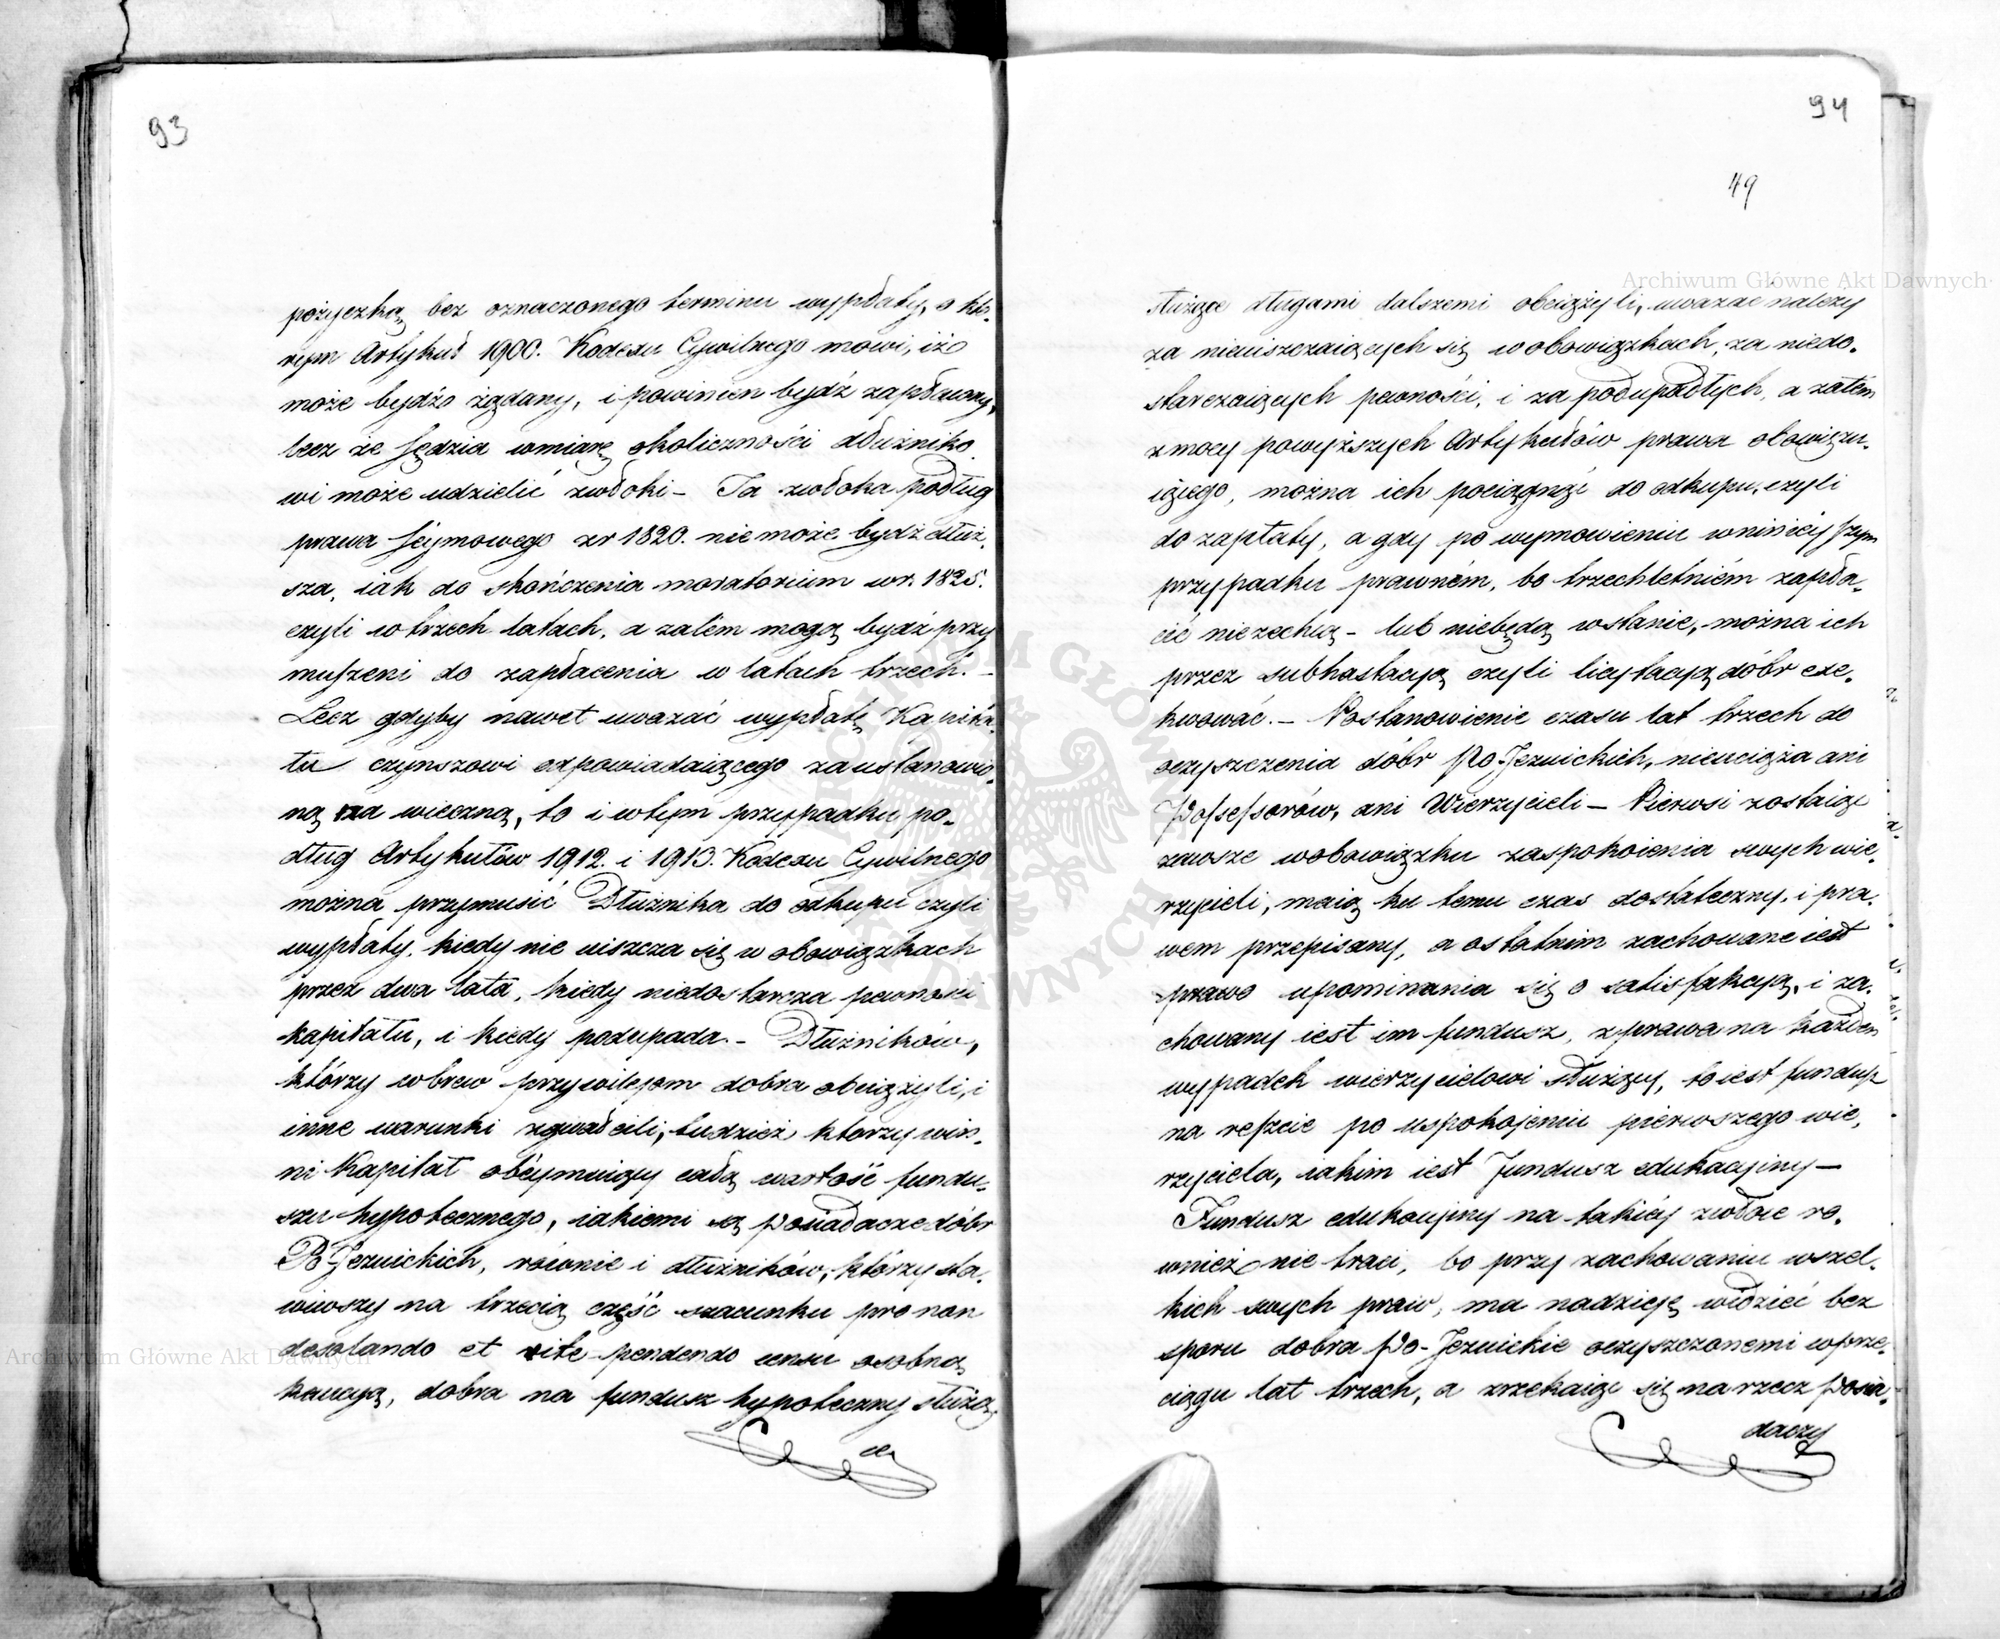 93
pożyczką bez oznaczonego terminu wypłaty, o któ-
rym Artykuł 1900. Kodexu Cywilnego mowi, iż
może bydź żądany, i powinien bydź zapłacony,
lecz że Sędzia w miarę okoliczności dłużniko
wi może udzielić zwłoki – Ta zwłoka podług
prawa Seymowego z r 1820. nie może bydź dłuż-
sza, iak do skończenia moratorium w r. 1825.
czyli w trzech latach, a zatém mogą bydź przy
muszeni do zapłacenia w latach trzech. –
Lecz gdyby nawet uważać wypłatę Kapita-
łu czynszowi odpowiadaiącego za ustanowio-
ną za wieczną, to i w tym przypadku po-
dług Artykułów 1912. i 1913. Kodexu Cywilnego
można przymusić Dłużnika do odkupu czyli
wypłaty, kiedy nie uiszcza się w obowiązkach
przez dwa lata, kiedy niedostarcza pewności
kapitału, i kiedy podupada. – Dłużników,
którzy wbrew przywilejom dobra obciążyli, i
inne warunki zgwałcili, tudzież ktorzy win-
ni Kapitał obeymuiący całą wartość fundu-
szu hypotecznego, iakiemi są posiadacze dóbr
Po Jezuickich, rówinie i dłużników, którzy sta-
wiwszy na trzecią część szacunku pro non
desolando et rite pendendo censu osobną
kaucyą, dobra na fundusz hypoteczny służą-
ce
94
49
służące długami dalszemi obciążyli, uważać należy
za nieuiszczaiących się w obowiązkach, za niedo-
starczaiących pewności, i za podupadłych, a zatém
z mocy powyższych Artykułów prawa obowiązu-
iącego, można ich pociągnąć do odkupu, czyli
do zapłaty, a gdy po wymowieniu w ninieiszym
przypadku prawném, bo trzechletniém zapła-
cić niezechcą – lub niebędą wstanie, można ich
przez subhastacyą czyli licytacyą dóbr exe-
kwować. – Postanowienie czasu lat trzech do
oczyszczenia dóbr Po Jezuickich, nieuciąża ani
Possessorów, ani Wierzycieli – Pierwsi zostaią
zawsze w obowiązku zaspokoienia swych wie-
rzycieli, maią ku temu czas dostateczny, i pra-
wem przepisany, a ostatnim zachowane iest
prawo upominania się o satisfakcyą, i za-
chowany iest im fundusz, z prawa na każden
wypadek wierzycielowi służący, to iest fundusz
na reszcie po uspokojeniu pierwszego wie-
rzyciela, iakim iest Fundusz edukacyiny –
Fundusz edukacyiny na takiéy zwłoce ró-
wnież nie traci, bo przy zachowaniu wszel-
kich swych praw, ma nadzieję widzieć bez
sporu dobra Po-Jezuickie oczyszczonemi w prze-
ciągu lat trzech, a zrzekaiąc się na rzecz Posia-
daczy
Archiwum Główne Akt Dawnych
Archiwum Główne Akt Dawnych
ARCHIWUM GŁÓWNE AKT DAWNYCH